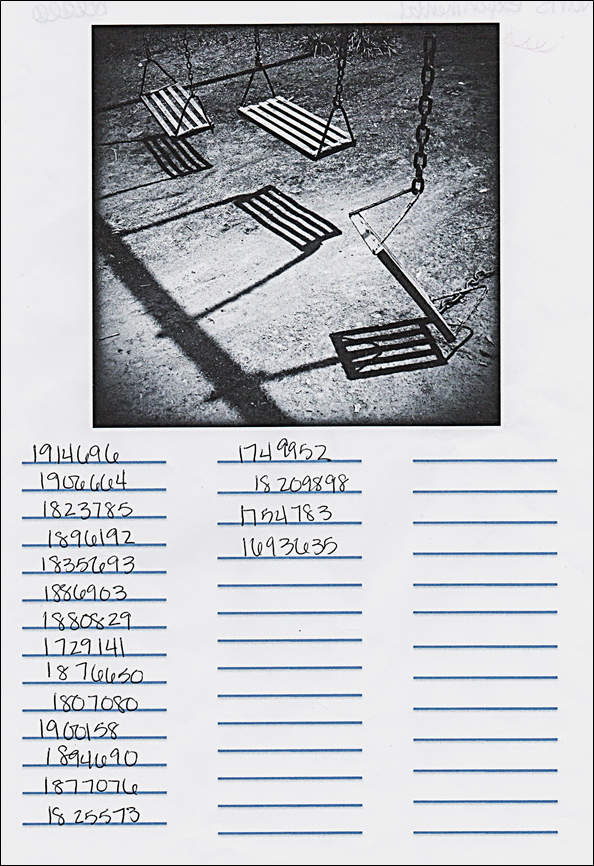 1914696
1906664
1823785
1896192
1835693
1886903
1880829
1729141
1876650
1807080
1900158
1894690
1877076
1825573
1749952
18209898
1754783
1693635